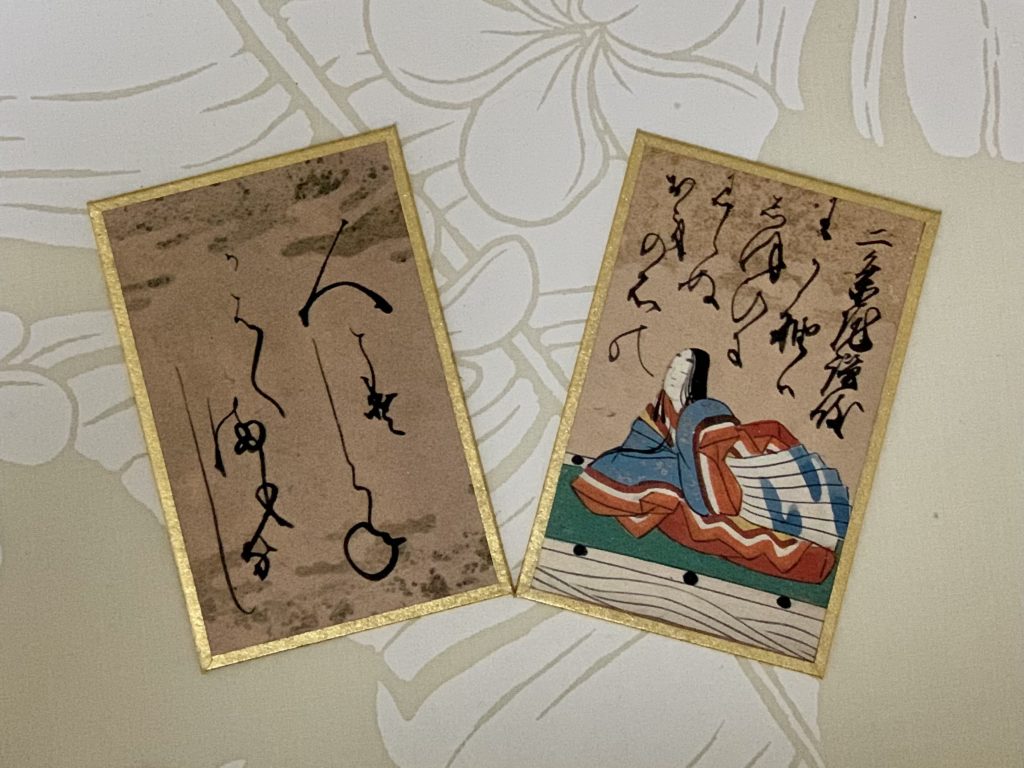 二条院讃岐
わか袖は
しほひに
みえぬ
おきの石の
人こそしらね
かはくまもなし